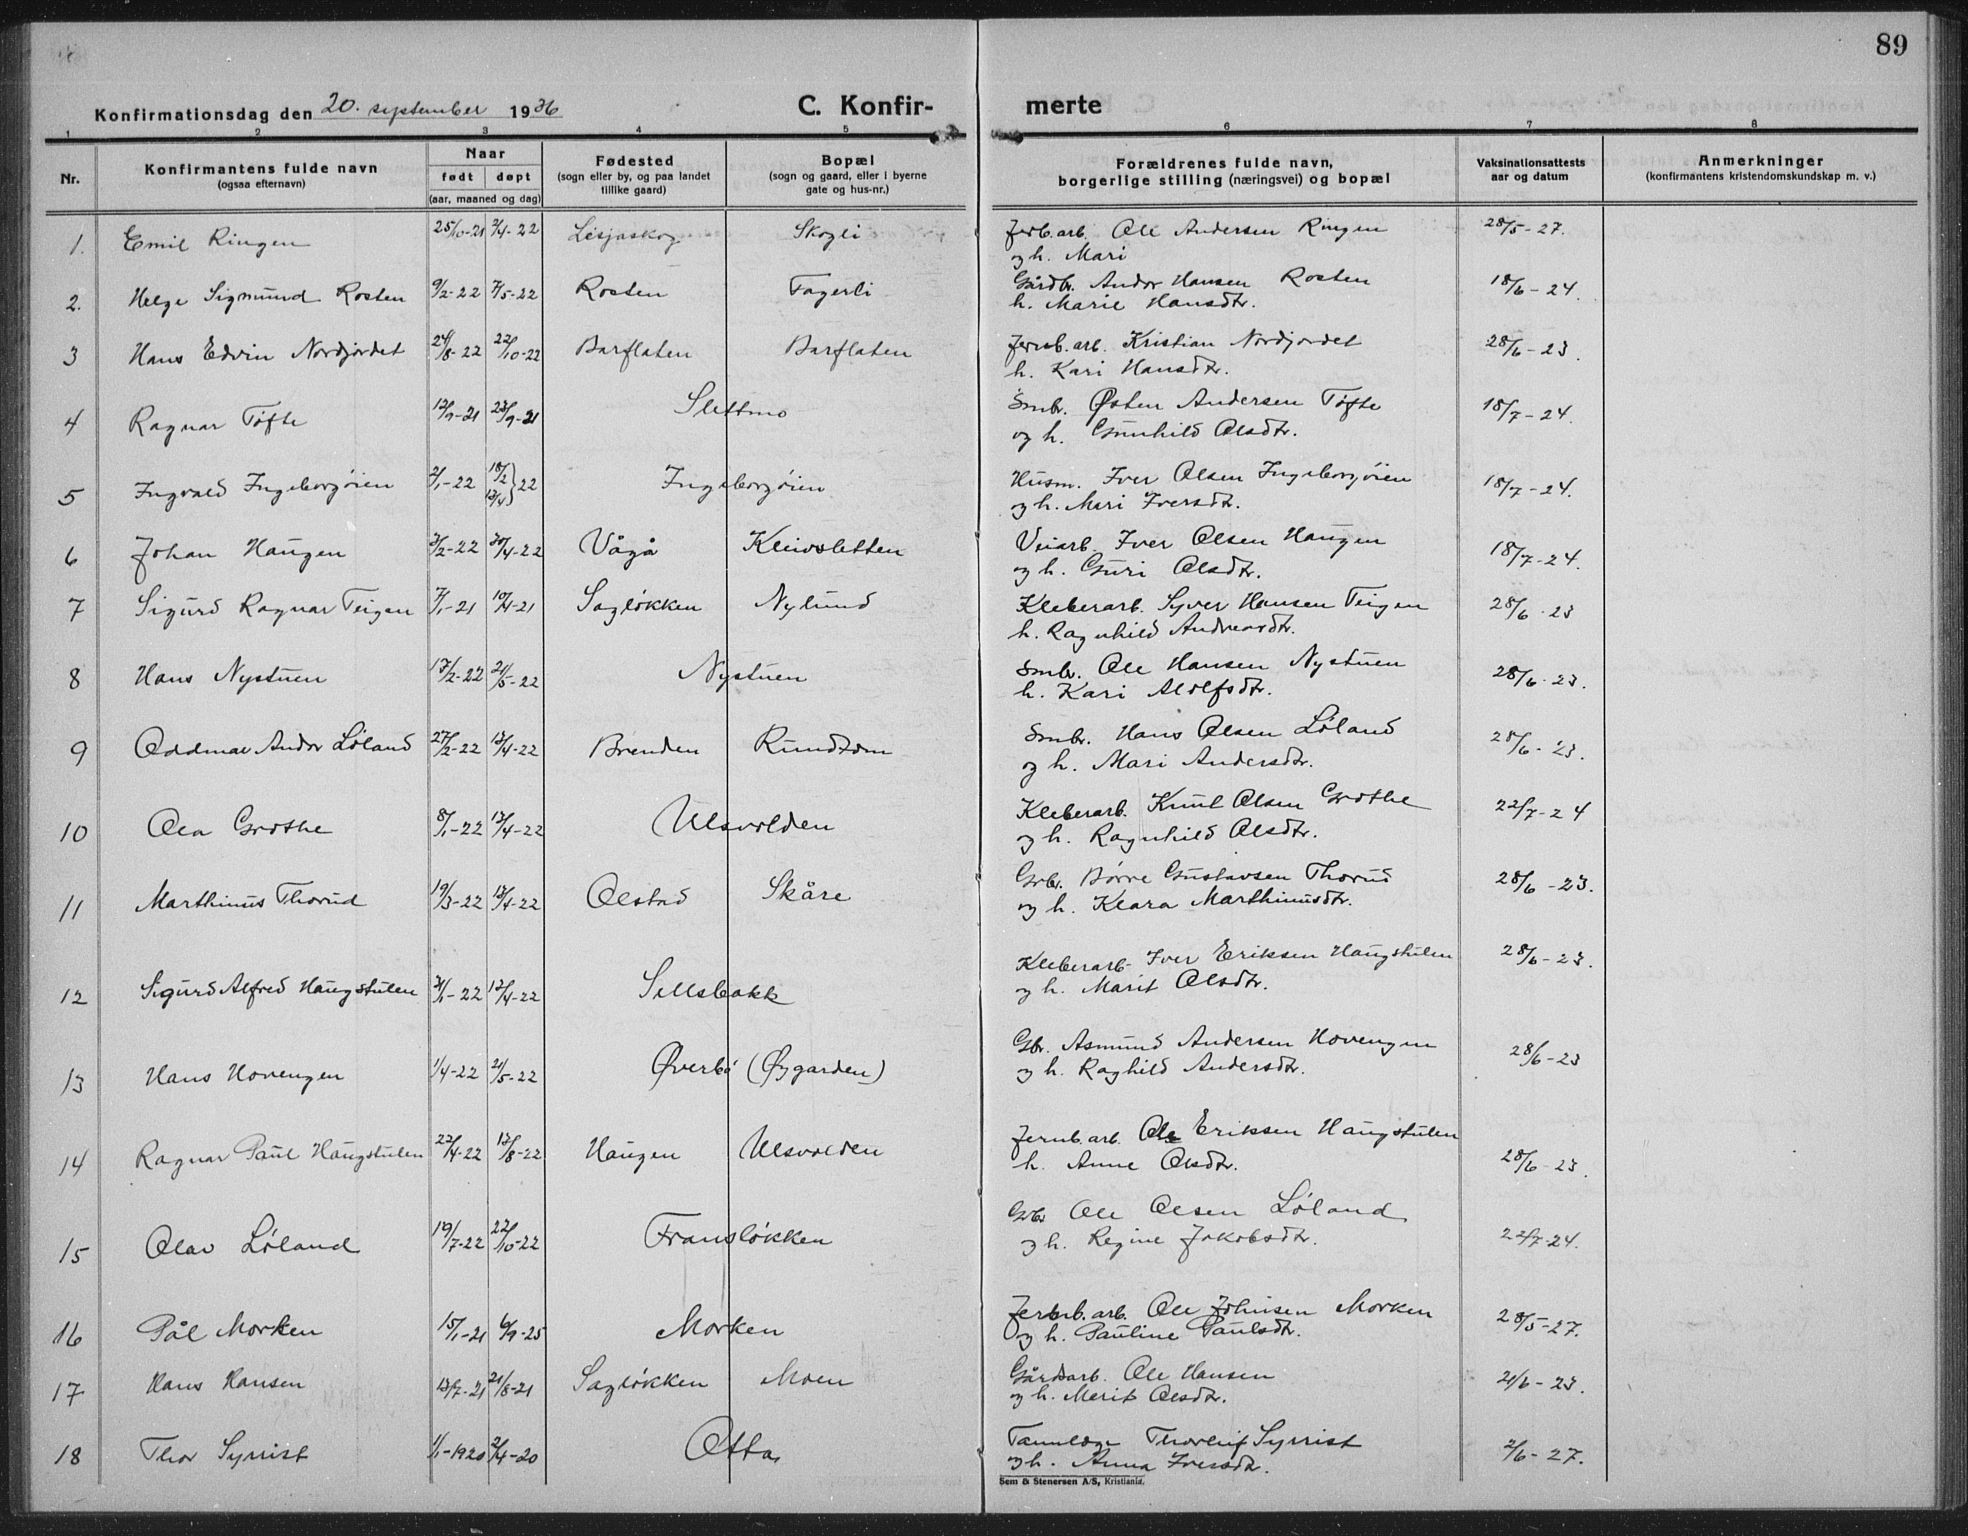 89
Konfirmationsdag den 20. september 1936 C. Konfir- merte
1 2 3 4 5 6 7 8
Nr. Konfirmantens fulde navn (ogsaa efternavn) Naar født døpt (aar, maaned og dag) Fødested (sogn eller by, og paa landet tillike gaard) Bopæl (sogn og gaard, eller i byerne gate og hus-nr.) Forældrenes fulde navn, borgerlige stilling (næringsvei) og bopæl Vaksinationsattests aar og datum Anmerkninger (konfirmantens kristendomskundskap m. v.)
1. Emil Ringen 25/10-21 2/4-22 Lesjaskog Skogli Jerb. arb. Ole Andersen Ringen 28/5-27.
og h. Mari
2. Helge Sigmund Rosten 9/2-22 7/5-22 Rosten Fagerli Gårdbr. Andor Hansen Rosten 18/6-24.
h. Marie Hansdtr.
3 Hans Edvin Nordjordet 24/8-22 22/10-22 Barflaten Barflaten Jernb. arb. Kristian Nordjordet 28/6-23.
h. Kari Hansdtr.
4 Ragnar Tøfte 12/9-21 23/9-21 Slettmo Smbr. Østen Andersen Tøfte 18/7-24.
og h. Gunhild Olsdtr.
5 Ingvald Ingeborgøien 2/1-22 18/2 13/4}22 Ingeborgøien Husm. Iver Olsen Ingeborgøien 18/7-24.
og h. Mari Iversdtr.
6 Johan Haugen 3/2-22 30/4-22 Vågå Kleivsletten Veiarb. Iver Olsen Haugen 18/7-24.
og h. Guri Olsdtr.
7 Sigurd Ragnar Teigen 7/1-21 10/4-21 Sagløkken Nylund Kleberarb. Syver Hansen Teigen 28/6-23
h. Ragnhild Andreasdtr.
8 Hans Nystuen 17/2-22 21/5-22 Nystuen Smbr. Ole Hansen Nystuen 28/6-23.
h. Kari Alolfsdtr.
9 Oddmar Andor Løland 27/2-22 13/4-22 Brenden Rundtom Smbr. Hans Olsen Løland 28/6-23.
og h. Mari Andersdtr.
10 Ola Grothe 8/1-22 13/4-22 Ulsvolden Kleberarb. Knut Olsen Grothe 22/7-24
og h. Ragnhild Olsdtr.
11 Marthinus Thorud 19/3-22 13/4-22 Olstad Skåre Grbr. Børre Gustavsen Thorud 28/6-23.
og h. Klara Marthinusdtr.
12 Sigurd Alfred Haugstulen 31/1-22 12/4-22 Sellsbakk Kleberarb. Iver Eriksen Haugstulen 28/6-23.
og h. Marit Olsdtr.
13 Hans Hovengen 1/4-22 21/5-22 Øverbø (Øygarden) Gbr. Asmund Andersen Hovengen 28/6-23
og h. Raghild Andersdtr.
14 Ragnar Paul Haugstulen 22/4-22 13/8-22 Haugen Ulsvolden Jernb. arb. Ole Eriksen Haugstulen 28/6-23.
h. Anne Olsdtr.
15 Olav Løland 19/7-22 22/10-22 Fransløkken Gbr Ole Olsen Løland 22/7-24.
og h. Regine Jakobsdtr.
16 Pål Morken 15/1-21 6/9-25 Morken Jernb. arb. Ole Johnsen Morken 28/5-27.
og h. Pauline Paulsdtr.
17 Hans Hansen 13/7-21 21/8-21 Sagløkken Moen Gårdsarb. Ole Hansen 21/6-23.
og h. Merit Olsdtr.
18 Thor Syrrist 1/1-1920 2/4-20 Otta Tannlæge Thorleif Syrrist 2/6-27.
og h. Anna Iversdtr.
Sem & Stenersen A/S, Kristiania.